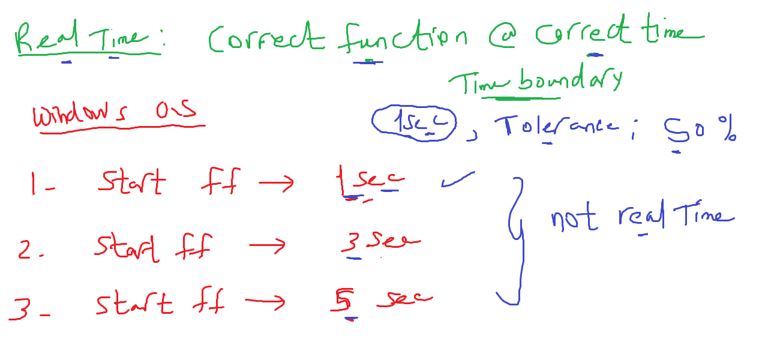 Real Time: Correct function @ correct time
Time boundary
Windows O.S
1sec, Tolerance; 50%
1- Start ff → 1sec ✓
2. Start ff → 3 Sec
3- Start ff → 5 sec
not real Time